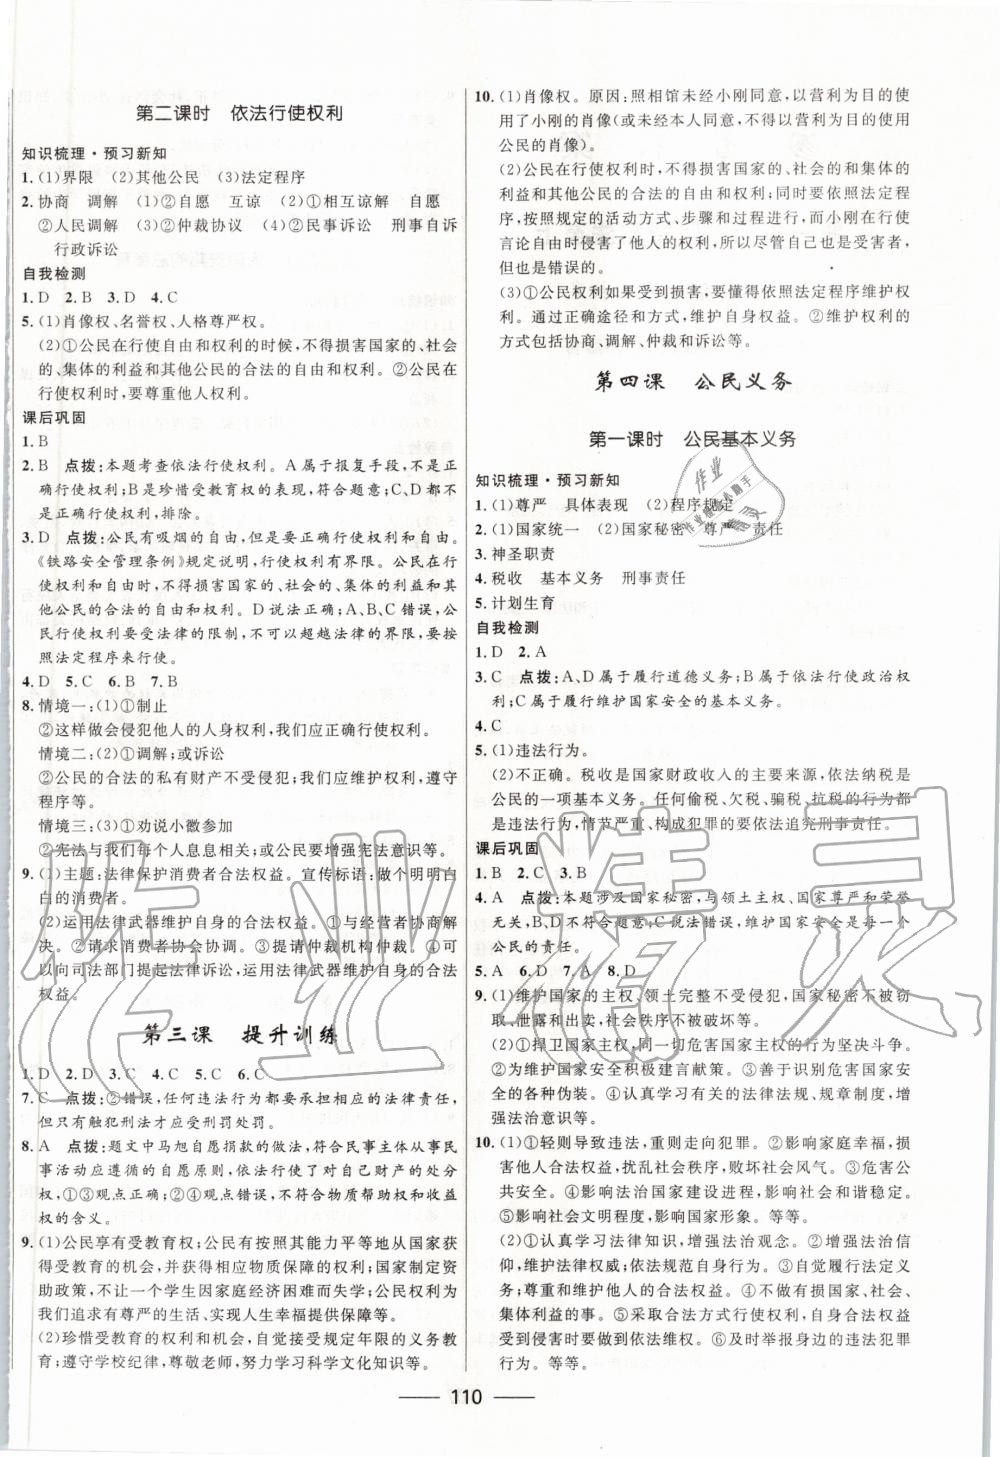 第二课时　依法行使权利
知识梳理·预习新知
1. (1)界限　(2)其他公民　(3)法定程序
2. 协商　调解　(1)①自愿　互谅　(2)①相互谅解　自愿
②人民调解　(3)②仲裁协议　(4)②民事诉讼　刑事自诉
行政诉讼
自我检测
1. D　2. B　3. D　4. C
5. (1)肖像权、名誉权、人格尊严权。
(2)①公民在行使自由和权利的时候,不得损害国家的、社会
的、集体的利益和其他公民的合法的自由和权利。②公民在
行使权利时,要尊重他人权利。
课后巩固
1. B
2. B　点拨:本题考查依法行使权利。A 属于报复手段,不是正
确行使权利;B 是珍惜受教育权的表现,符合题意;C、D 都不
是正确行使权利,排除。
3. D　点拨:公民有吸烟的自由,但是要正确行使权利和自由。
《铁路安全管理条例》规定说明,行使权利有界限。公民在行
使权利和自由时,不得损害国家的、社会的、集体的利益和其
他公民的合法的自由和权利。D 说法正确;A、B、C 错误,公
民行使权利要受法律的限制,不可以超越法律的界限,要按
照法定程序来行使。
4. D　5. C　6. B　7. B
8. 情境一:(1)①制止
②这样做会侵犯他人的人身权利,我们应正确行使权利。
情境二:(2)①调解;或诉讼
②公民的合法的私有财产不受侵犯;我们应维护权利,遵守
程序等。
情境三:(3)①劝说小微参加
②宪法与我们每个人息息相关;或公民要增强宪法意识等。
9. (1)主题:法律保护消费者合法权益。宣传标语:做个明明白
白的消费者。
(2)运用法律武器维护自身的合法权益。①与经营者协商解
决。②请求消费者协会协调。③提请仲裁机构仲裁。④可
以向司法部门提起法律诉讼,运用法律武器维护自身的合法
权益。
第三课　提升训练
1. D　2. D　3. C　4. C　5. C　6. C
7. C　点拨:②错误,任何违法行为都要承担相应的法律责任,
但只有触犯刑法才应受到刑罚处罚。
8. A　点拨:题文中马旭自愿捐款的做法,符合民事主体从事民
事活动应遵循的自愿原则,依法行使了对自己财产的处分
权,①③观点正确;②④观点错误,不符合物质帮助权和收益
权的含义。
9. (1)公民享有受教育权;公民有按照其能力平等地从国家获
得受教育的机会,并获得相应物质保障的权利;国家制定资
助政策,不让一个学生因家庭经济困难而失学;公民权利为
我们追求有尊严的生活、实现人生幸福提供保障等。
(2)珍惜受教育的权利和机会,自觉接受规定年限的义务教
育;遵守学校纪律,尊敬老师,努力学习科学文化知识等。
10. (1)肖像权。原因:照相馆未经小刚同意,以营利为目的使
用了小刚的肖像(或未经本人同意,不得以营利为目的使用
公民的肖像)。
(2)公民在行使权利时,不得损害国家的、社会的和集体的
利益和其他公民的合法的自由和权利;同时要依照法定程
序,按照规定的活动方式、步骤和过程进行。而小刚在行使
言论自由时妨害了他人的权利,所以尽管自己也是受害者,
但也是错误的。
(3)①公民权利如果受到损害,要懂得依照法定程序维护权
利。通过正确途径和方式,维护自身权益。②维护权利的
方式包括协商、调解、仲裁和诉讼等。
第四课　公民义务
第一课时　公民基本义务
知识梳理·预习新知
1. (1)尊严　具体表现　(2)程序规定
2. (1)国家统一　(2)国家秘密　尊严　责任
3. 神圣职责
4. 税收　基本义务　刑事责任
5. 计划生育
自我检测
1. D　2. A
3. C　点拨:A、D 属于履行道德义务;B 属于依法行使政治权
利;C 属于履行维护国家安全的基本义务。
4. C
5. (1)违法行为。
(2)不正确。税收是国家财政收入的主要来源,依法纳税是
公民的一项基本义务。任何偷税、欠税、骗税、抗税的行为都
是违法行为,情节严重、构成犯罪的要依法追究刑事责任。
课后巩固
1. B　2. C　3. B
4. A　点拨:本题涉及国家安全,与领土主权、国家尊严和荣誉
无关,B、D 不符合题意;C 说法错误,维护国家安全是每一个
公民的责任。
5. A　6. D　7. A　8. D
9. (1)维护国家的主权、领土完整不受侵犯,国家秘密不被窃
取、泄露和出卖,社会秩序不被破坏等。
(2)①捍卫国家主权,同一切危害国家主权的行为坚决斗争。
②为维护国家安全积极建言献策。③提高警惕,善于识别间
谍的各种伪装。④认真学习有关的法律法规、规章制度,增
强法治意识等。
10. (1)①轻则导致违法,重则走向犯罪。②影响家庭幸福,损
害他人合法权益,扰乱社会秩序,败坏社会风气。③危害公
共安全。④影响法治国家建设进程,影响社会和谐稳定。
⑤影响社会文明程度,影响国家形象。等等。
(2)①认真学习法律知识,增强法治观念。②增强法治信
仰,维护法律权威;依法规范自身行为。③自觉履行法定义
务;尊重和维护他人合法权益。④不做损害国家、社会、
集体利益的事。⑤采取合法方式行使权利,自身合法权益
受到侵害时要做到依法维权。⑥及时举报身边的违法犯罪
行为。等等。
110
作业精灵
作业
作业检查小助手
精灵